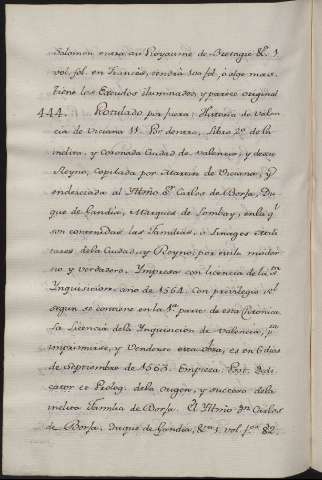 Salomon enzea au Royaume de Bretagne &c. 1.
vol. fol. en Francés, tendrá 300 fol. ó algo mas.
tiene los Escudos iluminados, y parece original
444. Rotulado por fuera: Historia de Valen-
cia de Viciana 11. Por dentro, Libro 2º. de la
inclita, y Coronada Ciudad de Valencia, y de su
Reyno, copilada por Martin de Viciana, y
enderezada al Illmo. Sr. Carlos de Borja, Du-
que de Gandia, Marques de Lombay, en la q.l
son contenidas las Familias, ó Linages Mili-
tares de la Ciudad, y Reyno; por estilo moder-
no y verdadero. Impresso con licencia de la sta.
Inquisicion. año de 1564. Con privilegio Rl.
segun se contiene en la 1ra. parte de esta Chronica.
La Licencia de la Inquisicion de Valencia, pra.
imprimirse, y Venderse esta obra, es en 6 dias
de Septiembre de 1563. Empieza Post. Dedi-
cator et Prolog. de la origen, y sucesso de la
inclita Familia de Borja. El Illmo. Dn. Carlos
de Borja. Duque de Gandia, &ra. 1. vol. fra. 82.